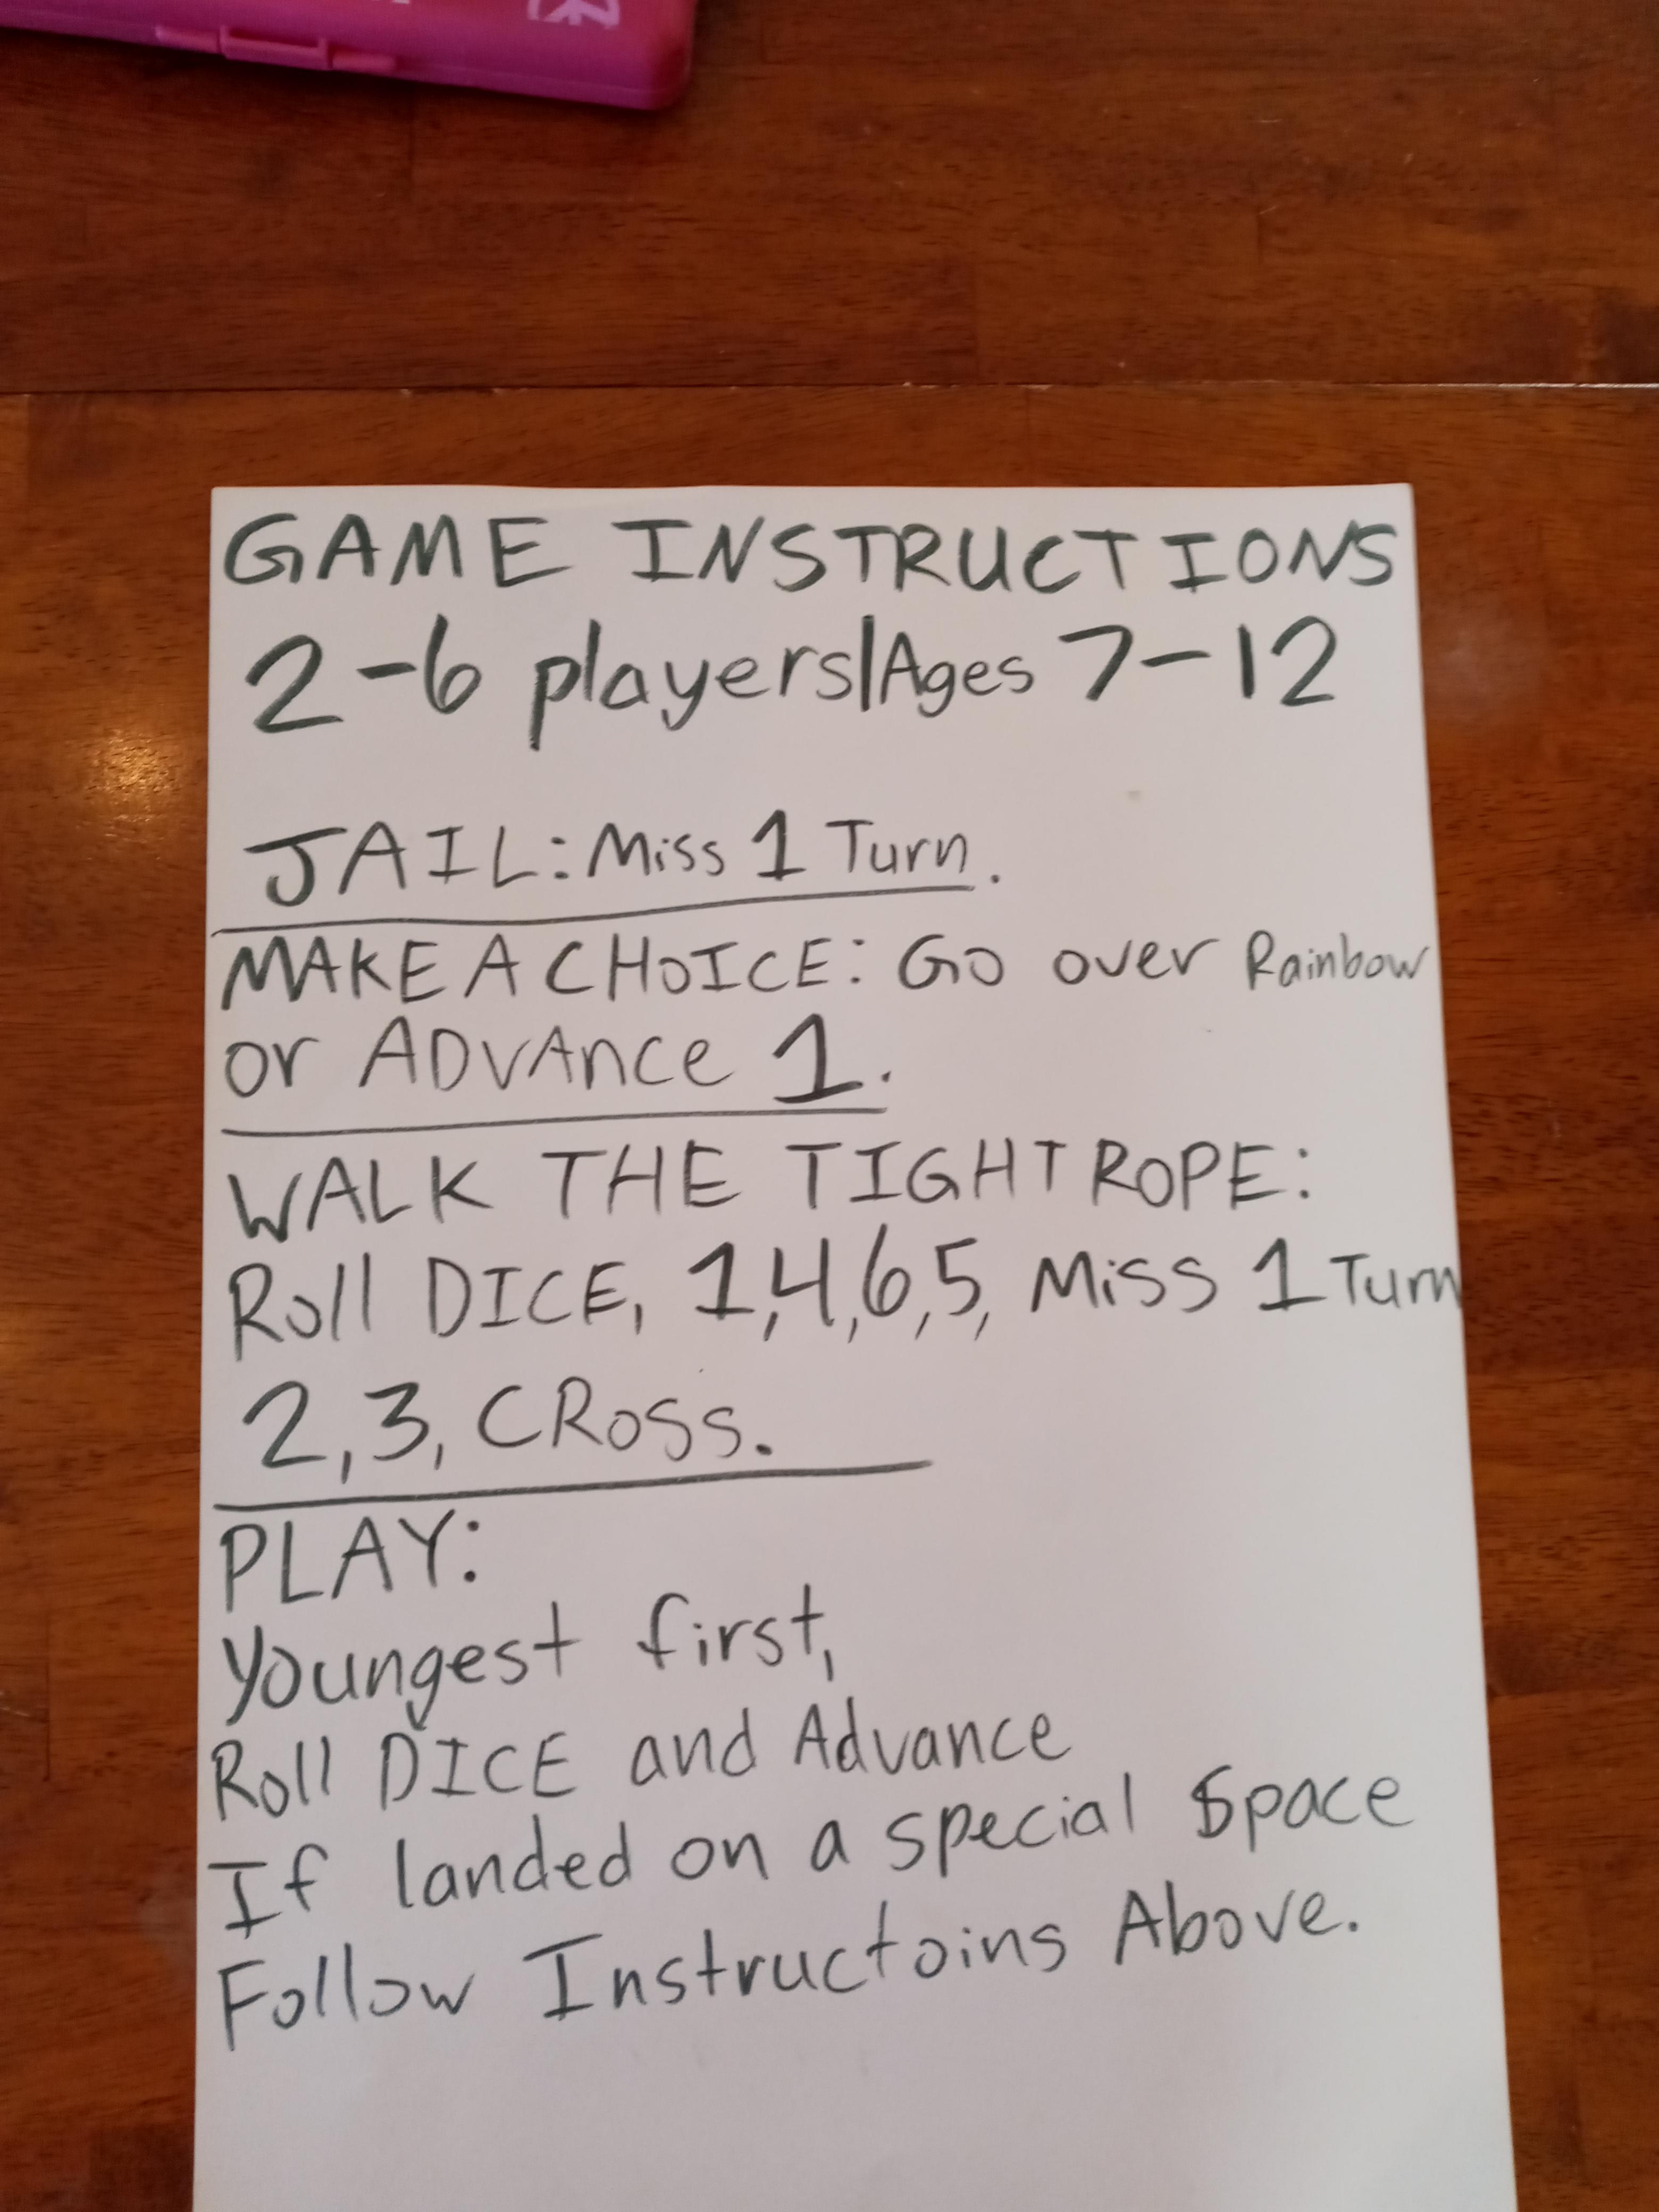 GAME INSTRUCTIONS
2-6 players|Ages 7-12
JAIL: Miss 1 Turn.
MAKE A CHOICE: Go over Rainbow
or ADVAnce 1.
WALK THE TIGHTROPE:
Roll DICE, 1,4,6,5, Miss 1 Turn
2,3, CRoss.
PLAY:
Youngest first,
Roll DICE and Advance
If landed on a special Space
Follow Instructoins Above.